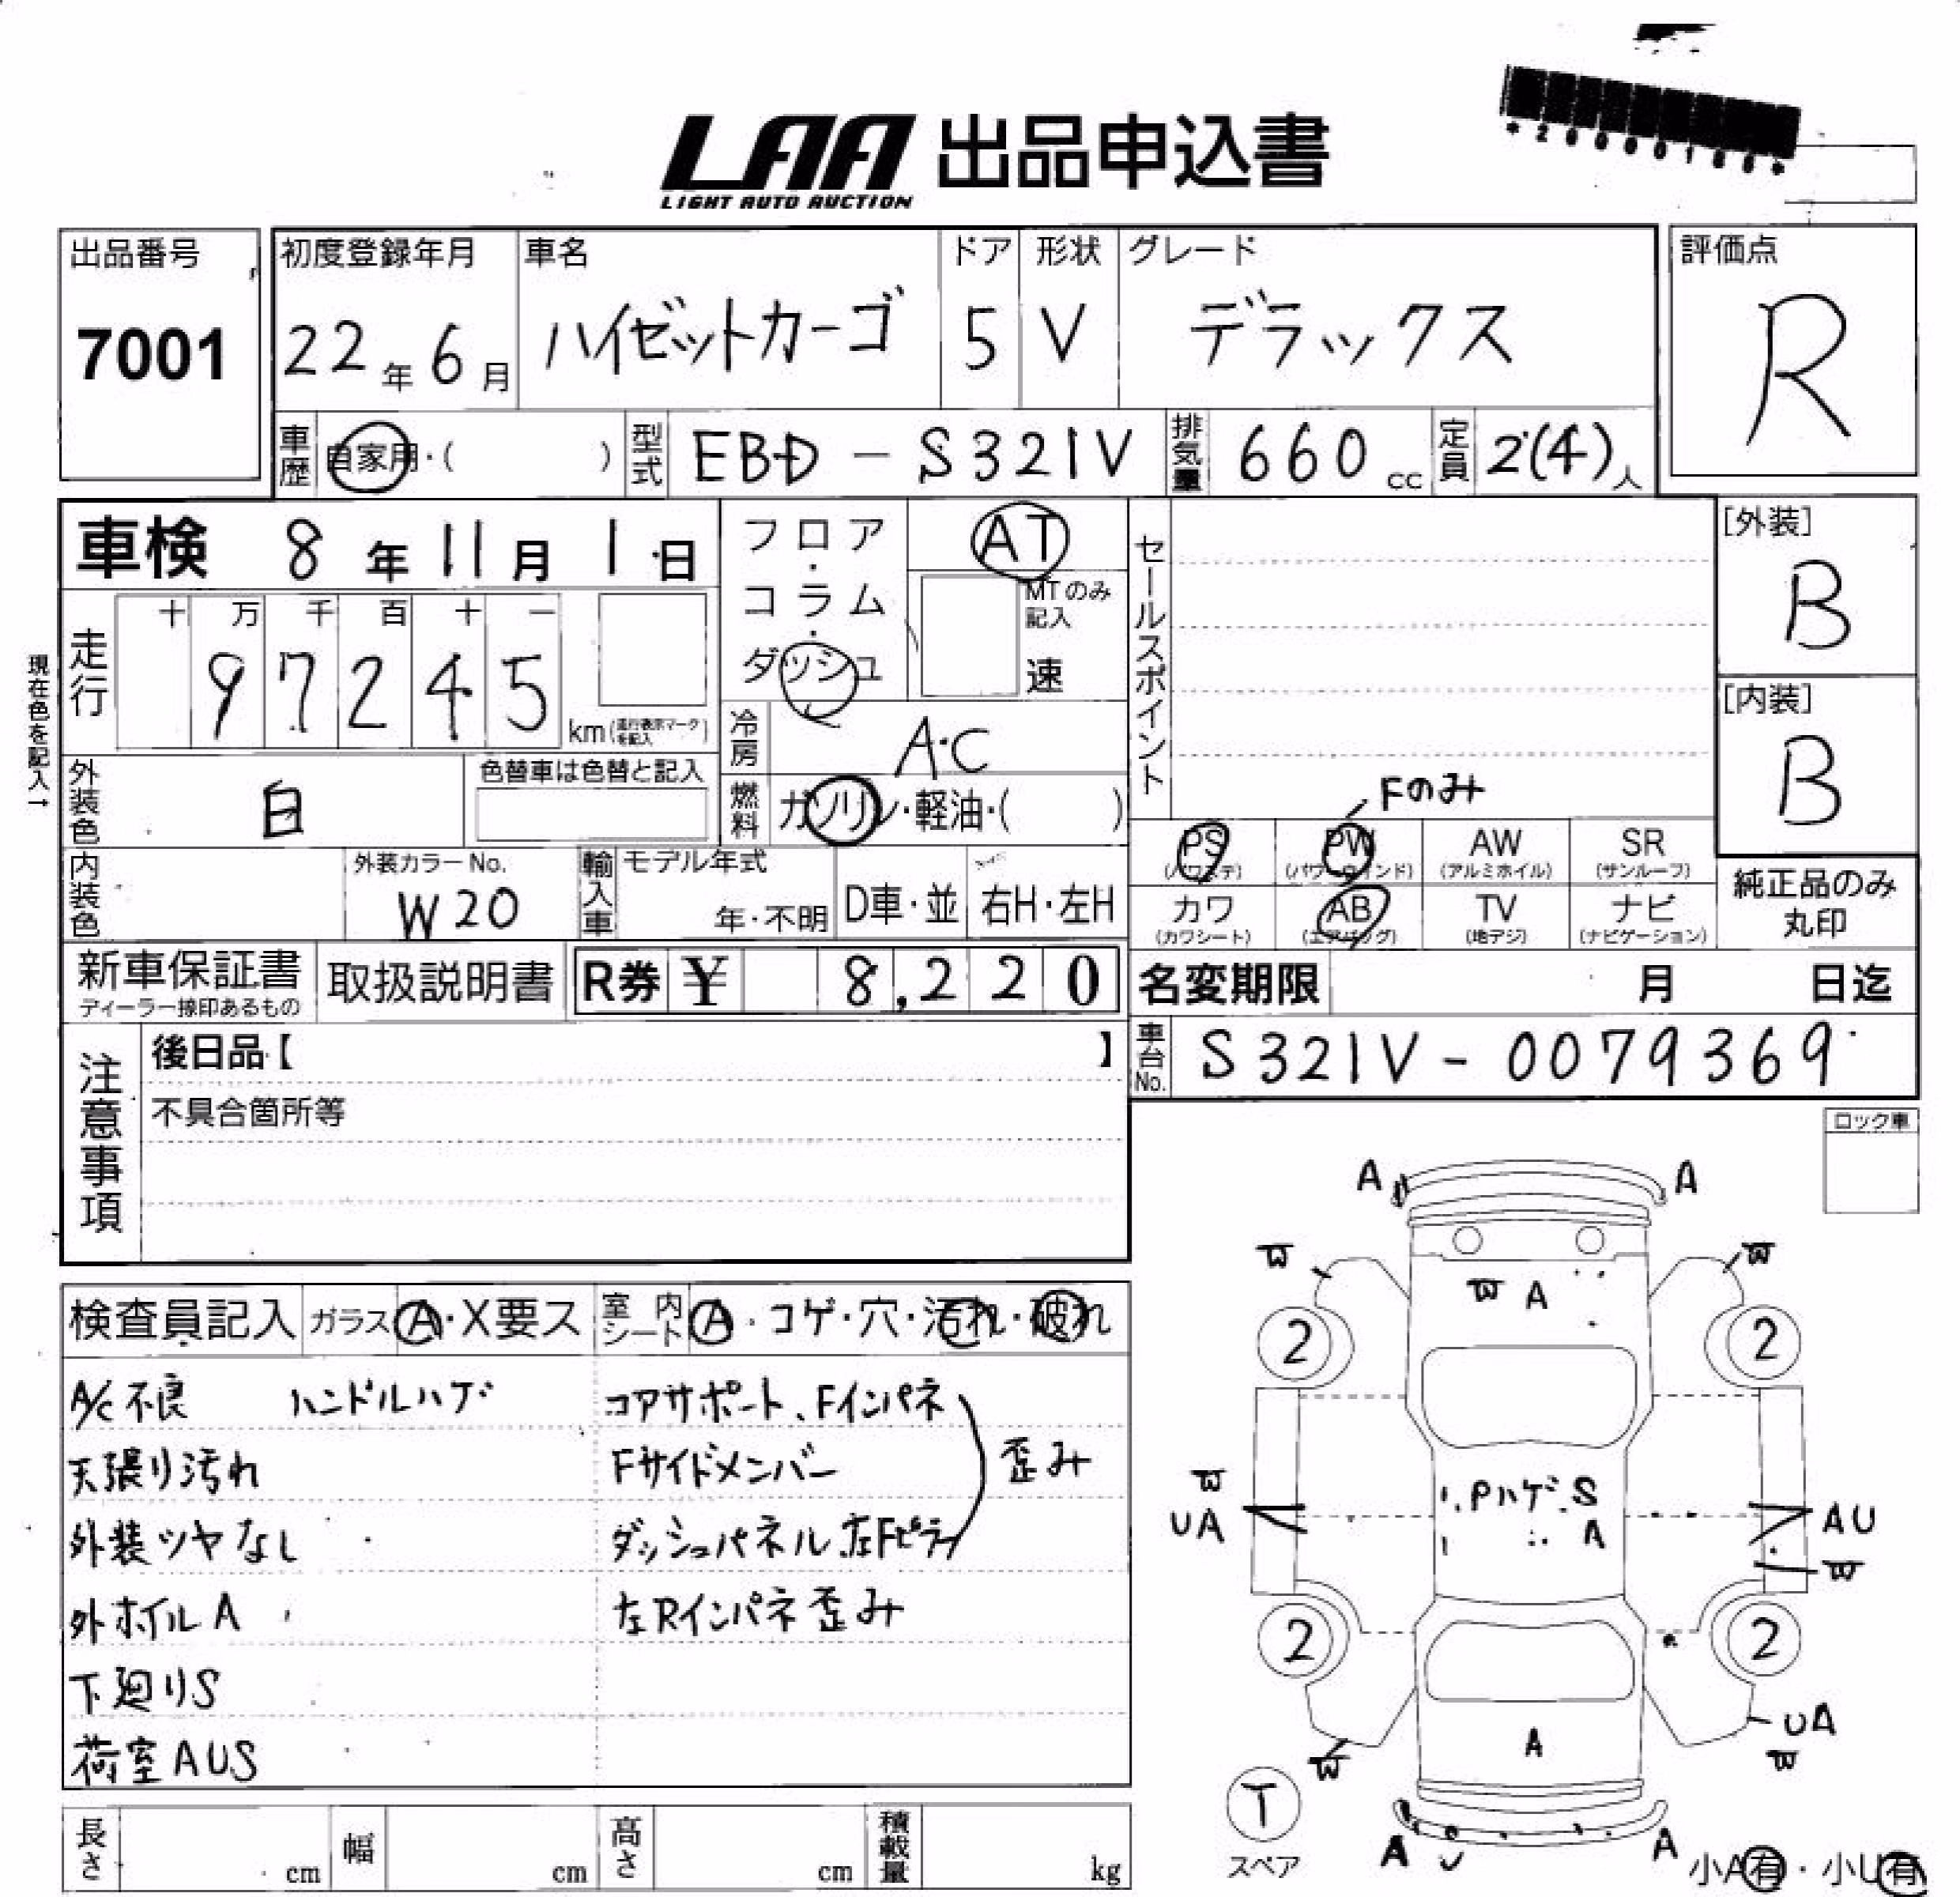 *20000186*
LAA 出品申込書
LIGHT AUTO AUCTION
出品番号 初度登録年月 車名 ドア 形状 グレード 評価点
7001 22年6月 ハイゼットカーゴ 5 V デラックス R
車歴 自家用・( ) 型式 EBD-S321V 排気量 660cc 定員 2(4)人
車検 8年11月1日 フロア・コラム・ダッシュ AT セールスポイント [外装]
B
MTのみ記入
速
現在色を記入→
走行 十 万 千 百 十 一
97245 km(走行表示マークを記入)
[内装]
B
冷房 A・C
外装色 白 色替車は色替と記入 燃料 ガソリン・軽油・( )
Fのみ
PS (パワステ) PW (パワーウインド) AW (アルミホイル) SR (サンルーフ)
内装色 外装カラーNo. W20 輸入車 モデル年式 年・不明 D車・並 右H・左H
カワ (カワシート) AB (エアバッグ) TV (地デジ) ナビ (ナビゲーション)
純正品のみ
丸印
新車保証書 ディーラー捺印あるもの 取扱説明書 R券 ¥ 8,220 名変期限 月 日迄
注意事項 後日品【 】 車台No. S321V-0079369
不具合箇所等
ロック車
検査員記入 ガラス A・X要ス 室内シート A・コゲ・穴・汚れ・破れ
A/C不良 ハンドルハゲ コアサポート、Fインパネ
天張り汚れ Fサイドメンバー 歪み
外装ツヤなし ダッシュパネル、左Fピラ
外ホイルA 左Rインパネ歪み
下廻りS
荷室AUS
長さ cm 幅 cm 高さ cm 積載量 kg
A A
W W
W A
2 2
W
UA
Pハゲ、S
A
AU
W
2 2
UA
W
W
A
T
スペア
A U A
小A有・小U有